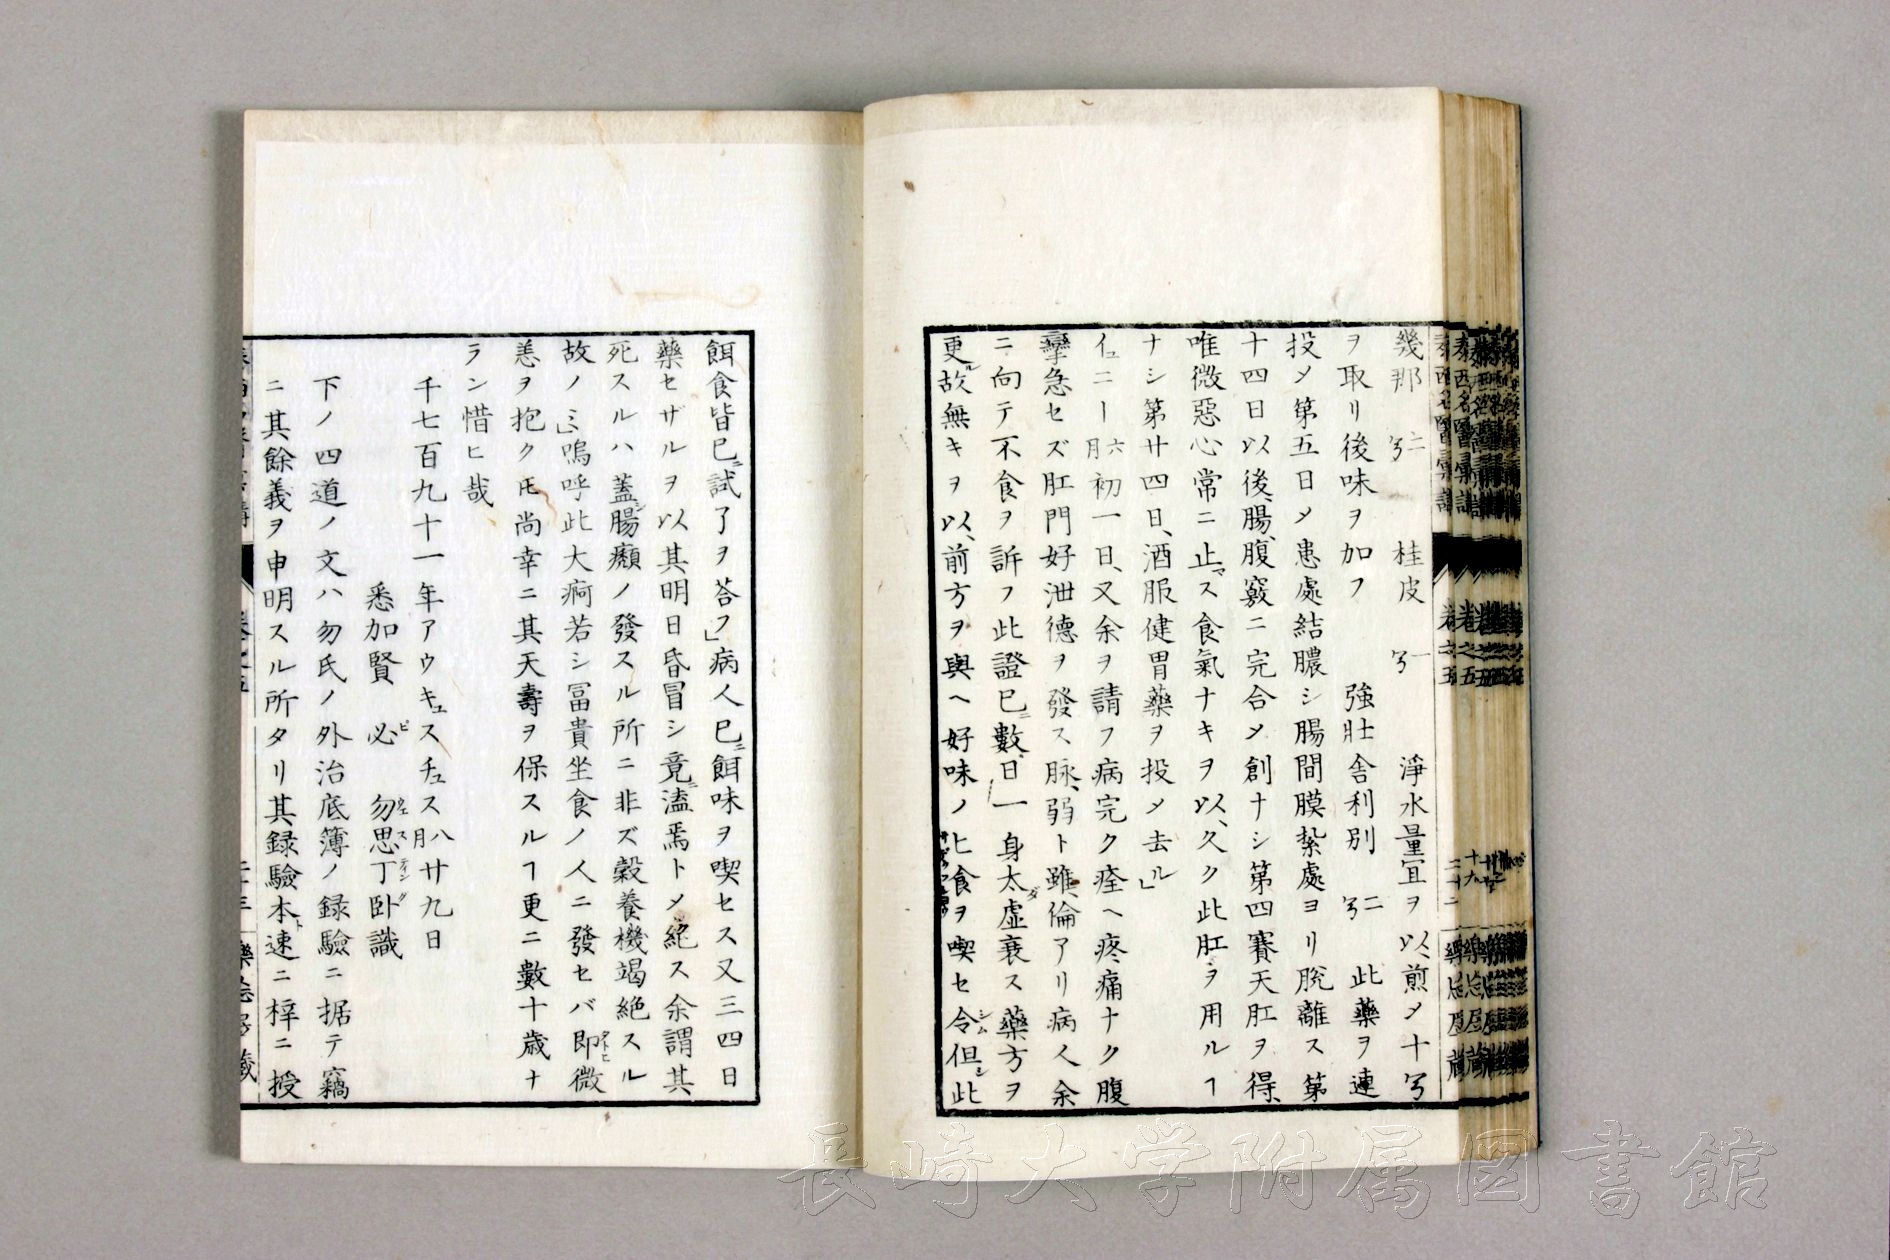 幾那 二ヲ 桂皮 一ヲ 淨水量宜ヲ以煎メ十ヲ
ヲ取リ後味ヲ加フ 強壯舎利別 二ヲ 此藥ヲ連
投メ第五日メ患處結膿シ腸間膜紮處ヨリ脱離ス第
十四日以後、腸、腹竅ニ完合メ創ナシ第四賽天肛ヲ得、
唯微惡心常ニ止マス食氣ナキヲ以、久ク此肛ヲ用ルヿ
ナシ第廿四日、酒服健胃藥ヲ投メ去ル」
イュニー六月初一日、又余ヲ請フ病完ク痊ヘ疼痛ナク腹
攣急セズ肛門好泄德ヲ發ス脉、弱ト雖倫アリ病人余
ニ向テ不食ヲ訴フ此證已ニ數日」一身太ダ虛衰ス藥方ヲ
更ル故無キヲ以、前方ヲ與ヘ好味ノヒ食ヲ喫セ令シム但シ此
餌食皆已ニ試了ヲ荅フ」病人已ニ餌味ヲ喫セス又三四日
藥セザルヲ以其明日昏冒シ竟ニ溘焉トメ絕ス余謂其
死スルハ蓋シ腸癩ノ發スル所ニ非ズ穀養機竭絕スル
故ノミ」嗚呼此大痾若シ冨貴坐食ノ人ニ發セバ即タトヒ微
恙ヲ抱クモ尚幸ニ其天壽ヲ保スルヿ更ニ數十歳ナ
ラン惜ヒ哉
千七百九十一年アウキュスチュス八月廿九日
悉加賢 必ピ 勿思丁卧ウエスティング識
下ノ四道ノ文ハ勿氏ノ外治底簿ノ録驗ニ据テ竊
ニ其餘義ヲ申明スル所タリ其録驗本ト速ニ梓ニ授
泰西名醫彙講
卷之五
長崎大学附属図書館